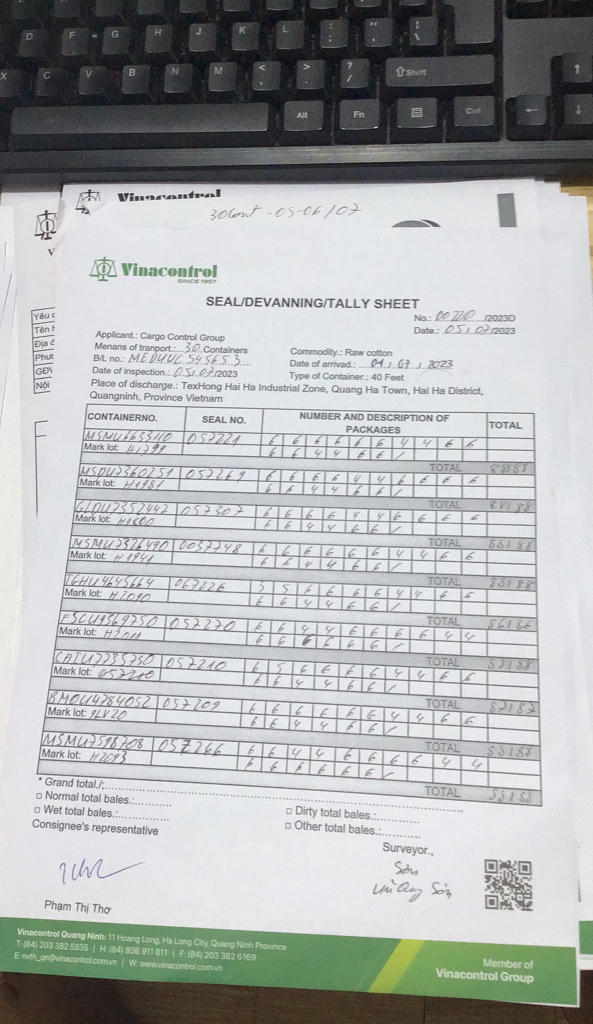 D F G H J K L
X C V B N M
Shift
Alt Fn Ctrl
Vinacontrol
30Cont - 05-06/07
Vinacontrol
SINCE 1957
SEAL/DEVANNING/TALLY SHEET
No.: 00220 /2023D
Date.: 05/07/2023
Applicant.: Cargo Control Group
Menans of tranport.: 30 Containers
Commodity.: Raw cotton
B/L no.: MEDUUC545653
Date of arrivad.: 04/07/2023
Date of inspection.: 05/07/2023
Type of Container.: 40 Feet
Place of discharge.: TexHong Hai Ha Industrial Zone, Quang Ha Town, Hai Ha District,
Quangninh, Province Vietnam
CONTAINERNO. SEAL NO. NUMBER AND DESCRIPTION OF PACKAGES TOTAL
MSMU6633110 057221 6 6 6 6 6 6 4 4 6 6
Mark lot: 6 6 4 4 6 6 /
TOTAL 88/88
MSDU7360251 057269 6 6 6 6 4 4 6 6 6 6
Mark lot: H1981 6 6 4 4 6 6 /
TOTAL
057307 6 6 6 6 4 4 6 6 6 6
Mark lot: 6 6 4 4 6 6 /
TOTAL 88/88
MSMU7326490 0057748 6 6 6 6 6 6 4 4 6 6
Mark lot: H1941 6 6 4 4 6 6 /
TOTAL 88/88
TGHU4645664 067226 5 5 6 6 6 6 4 4 6 6
Mark lot: 6 6 4 4 6 6 /
TOTAL 86/86
FSCU9569750 057270 6 6 4 4 6 6 6 6 4 4
Mark lot: 6 6 6 6 6 6 /
TOTAL
CAIU7735750 057210 6 5 6 6 6 6 4 4 6 6
Mark lot: 057210 6 6 4 4 6 6 /
TOTAL 87/87
BMOU4784052 057209 6 6 6 6 6 6 4 4 6 6
Mark lot: 9LV20 6 6 4 4 6 6 /
TOTAL 88/88
MSMU7598708 057266 6 6 4 4 6 6 6 6 4 4
Mark lot: H2093 6 6 6 6 6 6 /
TOTAL 88/88
* Grand total./:
□ Normal total bales.:
□ Dirty total bales.:
□ Wet total bales.:
□ Other total bales.:
Consignee's representative
Surveyor.,
Sơn
Sơn
Phạm Thị Thơ
Vinacontrol Quang Ninh: 11 Hoang Long, Ha Long City, Quang Ninh Province
T: (84) 203 382 5535 | H: (84) 936 911 811 | F: (84) 203 382 6169
E: nvth_qn@vinacontrol.com.vn | W: www.vinacontrol.com.vn
Member of
Vinacontrol Group